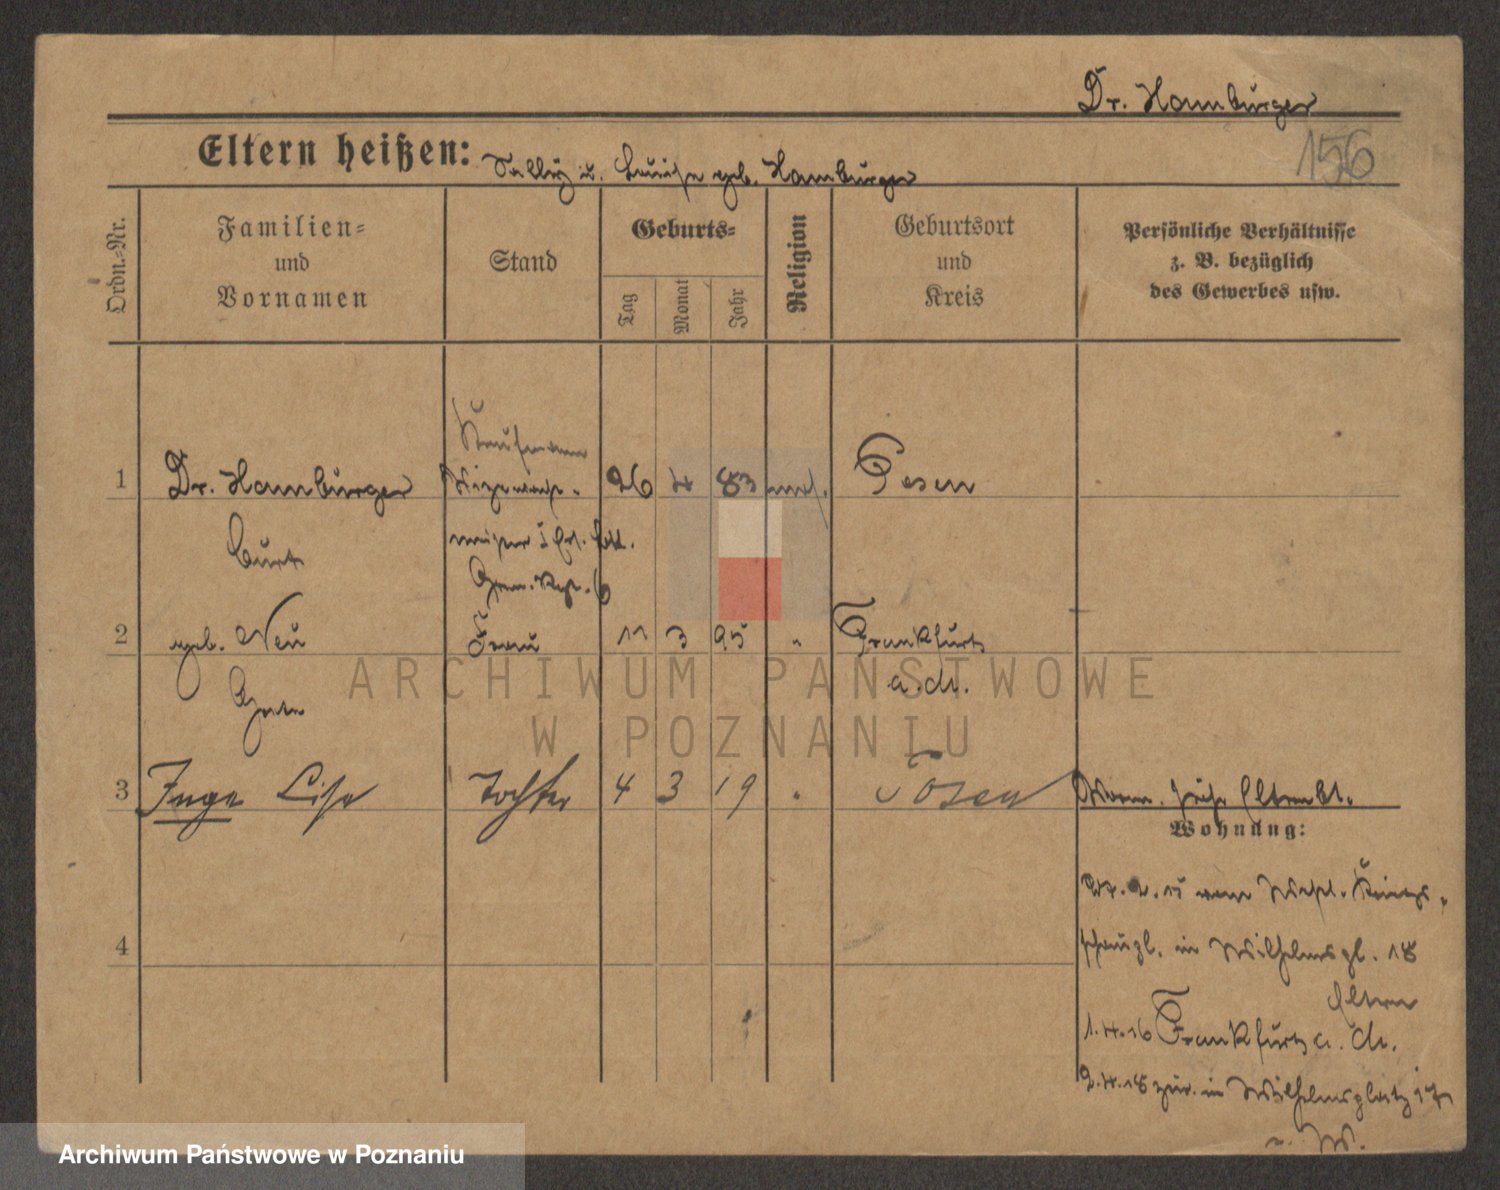 Dr. Hamburger
156
Eltern heißen: Sally u. Luise geb. Hamburger
Ordn.=Nr.
Familien=
und
Vornamen
Stand
Geburts=
Tag
Monat
Jahr
Religion
Geburtsort
und
Kreis
Persönliche Verhältnisse
z. B. bezüglich
des Gewerbes usw.
Kaufmann
1 Dr. Hamburger Vizewacht- 26 4 83 mos. Posen
Curt
meister
2 geb. Neu Frau 11 3 95 " Frankfurt
a. M.
3 Inge Lise Tochter 4 3 19 " Posen
Wohnung:
4
in Wilhelmspl. 18
Eltern
1.4.16 Frankfurt a. M.
2.4.18 zur. in Wilhelmsplatz 17
ARCHIWUM PAŃSTWOWE
W POZNANIU
Archiwum Państwowe w Poznaniu